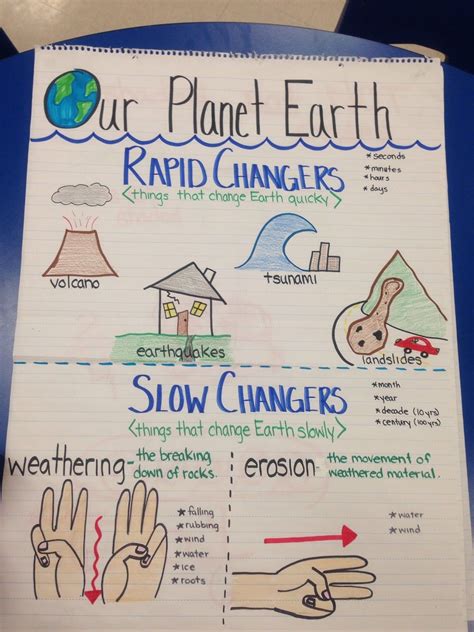 Our Planet Earth
RAPID CHANGERS
<things that change Earth quicky>
* seconds
* minutes
* hours
* days
volcano
tsunami
earthquakes
landslides
SLOW CHANGERS
<things that change Earth slowly>
* month
* year
* decade (10 yrs)
* century (100 yrs)
weathering- the breaking
down of rocks.
* falling
* rubbing
* wind
* water
* ice
* roots
erosion- the movement of
weathered material.
* water
* wind